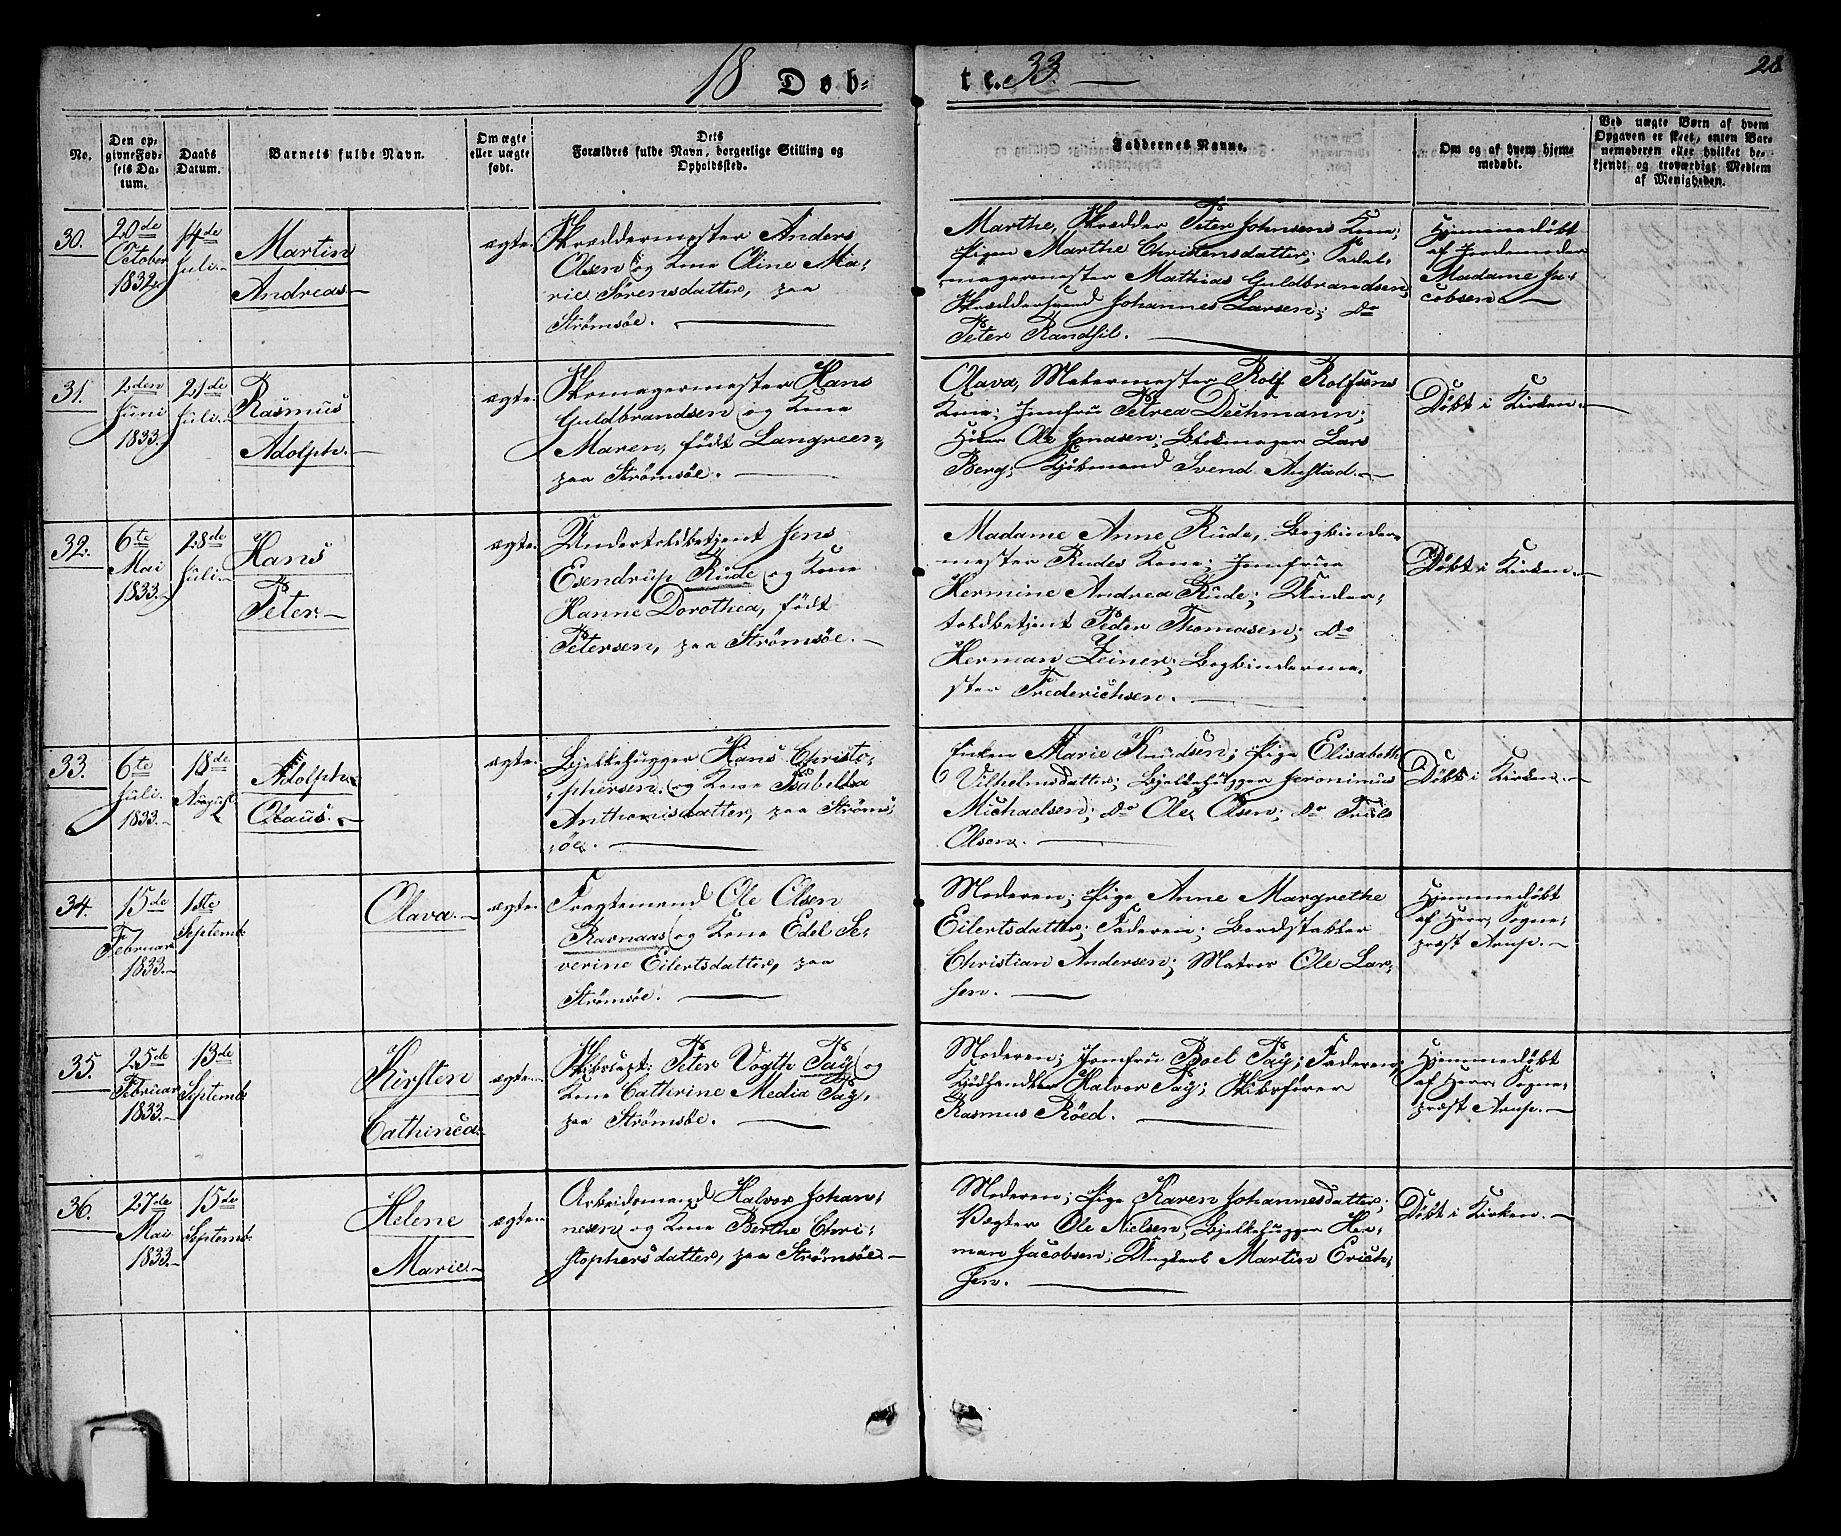 18 Døb- te. 33
28
No.
Den op-
givne Fød-
sels Da-
tum.
Daabs
Datum.
Barnets fulde Navn.
Om ægte
eller uægte
født.
Dets
Forældres fulde Navn, borgerlige Stilling og
Opholdssted.
Faddernes Navne.
Om og af hvem hjem-
medøbt.
Ved uægte Børn af hvem
Opgaven er skeet, enten Bar-
nemoderen eller hvilket be-
kjendt og troværdigt Medlem
af Menigheden.
30.
20de
October
1832
14de
Juli
Martin
Andreas
ægte
Skræddermester Anders
Olsen og Kone Oline Ma-
rie Sørensdatter, paa
Strømsøe.
Marthe, Skrædder Peter Johnsens Kone;
Pigen Marthe Christensdatter; Sadel-
magermester Mathias Guldbrandsen;
Skræddersvend Johannes Larsen; do
Peter Randfil.
Hjemmedøbt
af Jordemoder
Madame Ja-
cobsen
31.
2den
Juni
1833
21de
Juli
Rasmus
Adolph
ægte
Skomagermester Hans
Guldbrandsen og Kone
Maren, født Langreen,
paa Strømsøe.
Olava, Matermester Rolf Rolfsens
Kone; Jomfru Petrea Dechmann;
Herr Ole Jonasen; Blokmager Lars
Berg; Kjøbmand Svend Austad.
Døbt i Kirken.
32.
6te
Mai
1833
28de
Juli
Hans
Peter
ægte
Undertoldbetjent Jens
Esendrup Rude og Kone
Hanne Dorothea, født
Petersen, paa Strømsøe.
Madame Anne Rude, Bogbinder-
mester Rudes Kone; Jomfrue
Hermine Andrea Rude; Under-
toldbetjent Peder Thomasen; do
Herman Zeiner; Bogbinderme-
ster Frederichsen.
Døbt i Kirken.
33.
6te
Juli
1833
18de
August
Adolph
Olaus.
ægte
Bjelkehugger Hans Christo-
phersen, og Kone Isabella
Anthonisdatter, paa Strøms-
øe.
Enken Marie Knudsen; Pige Elisabeth
Vilhelmsdatter; Bjelkehugger Jeronimus
Michaelsen; do Ole Olsen; do Truls
Olsen.
Døbt i Kirken.
34.
15de
Februar
1833
1ste
Septembr
Olava.
ægte
Fragtemand Ole Olsen
Ravnaas og Kone Edel Se-
verine Eilertsdatter, paa
Strømsøe.
Moderen; Pige Anne Margrethe
Eilertsdatter; Faderen; Bordstabler
Christian Andersen; Matros Ole Lar-
sen.
Hjemmedøbt
af Herr Sogne-
præst Arup.
35.
25de
Februar
1833
13de
Septembr
Kirsten
Cathinca
ægte
Skibscapt: Peter Vogth Fay og
Kone Cathrine Media Fay,
paa Strømsøe.
Moderen; Jomfru Boel Fay; Faderen;
Halvor Fay; Skibsfører
Rasmus Röed.
Hjemmedøbt
af Herr Sogne-
præst Arup.
36.
27de
Mai
1833
15de
Septembr
Helene
Marie
ægte
Arbeidsmand Halvor Johan-
nesen og Kone Berthe Chri-
stophersdatter, paa Strømsøe
Moderen; Pige Karen Johannesdatter;
Vægter Ole Nielsen; Bjelkehugger Her-
man Jacobsen; Ungkarl Martin Erich-
sen.
Døbt i Kirken.